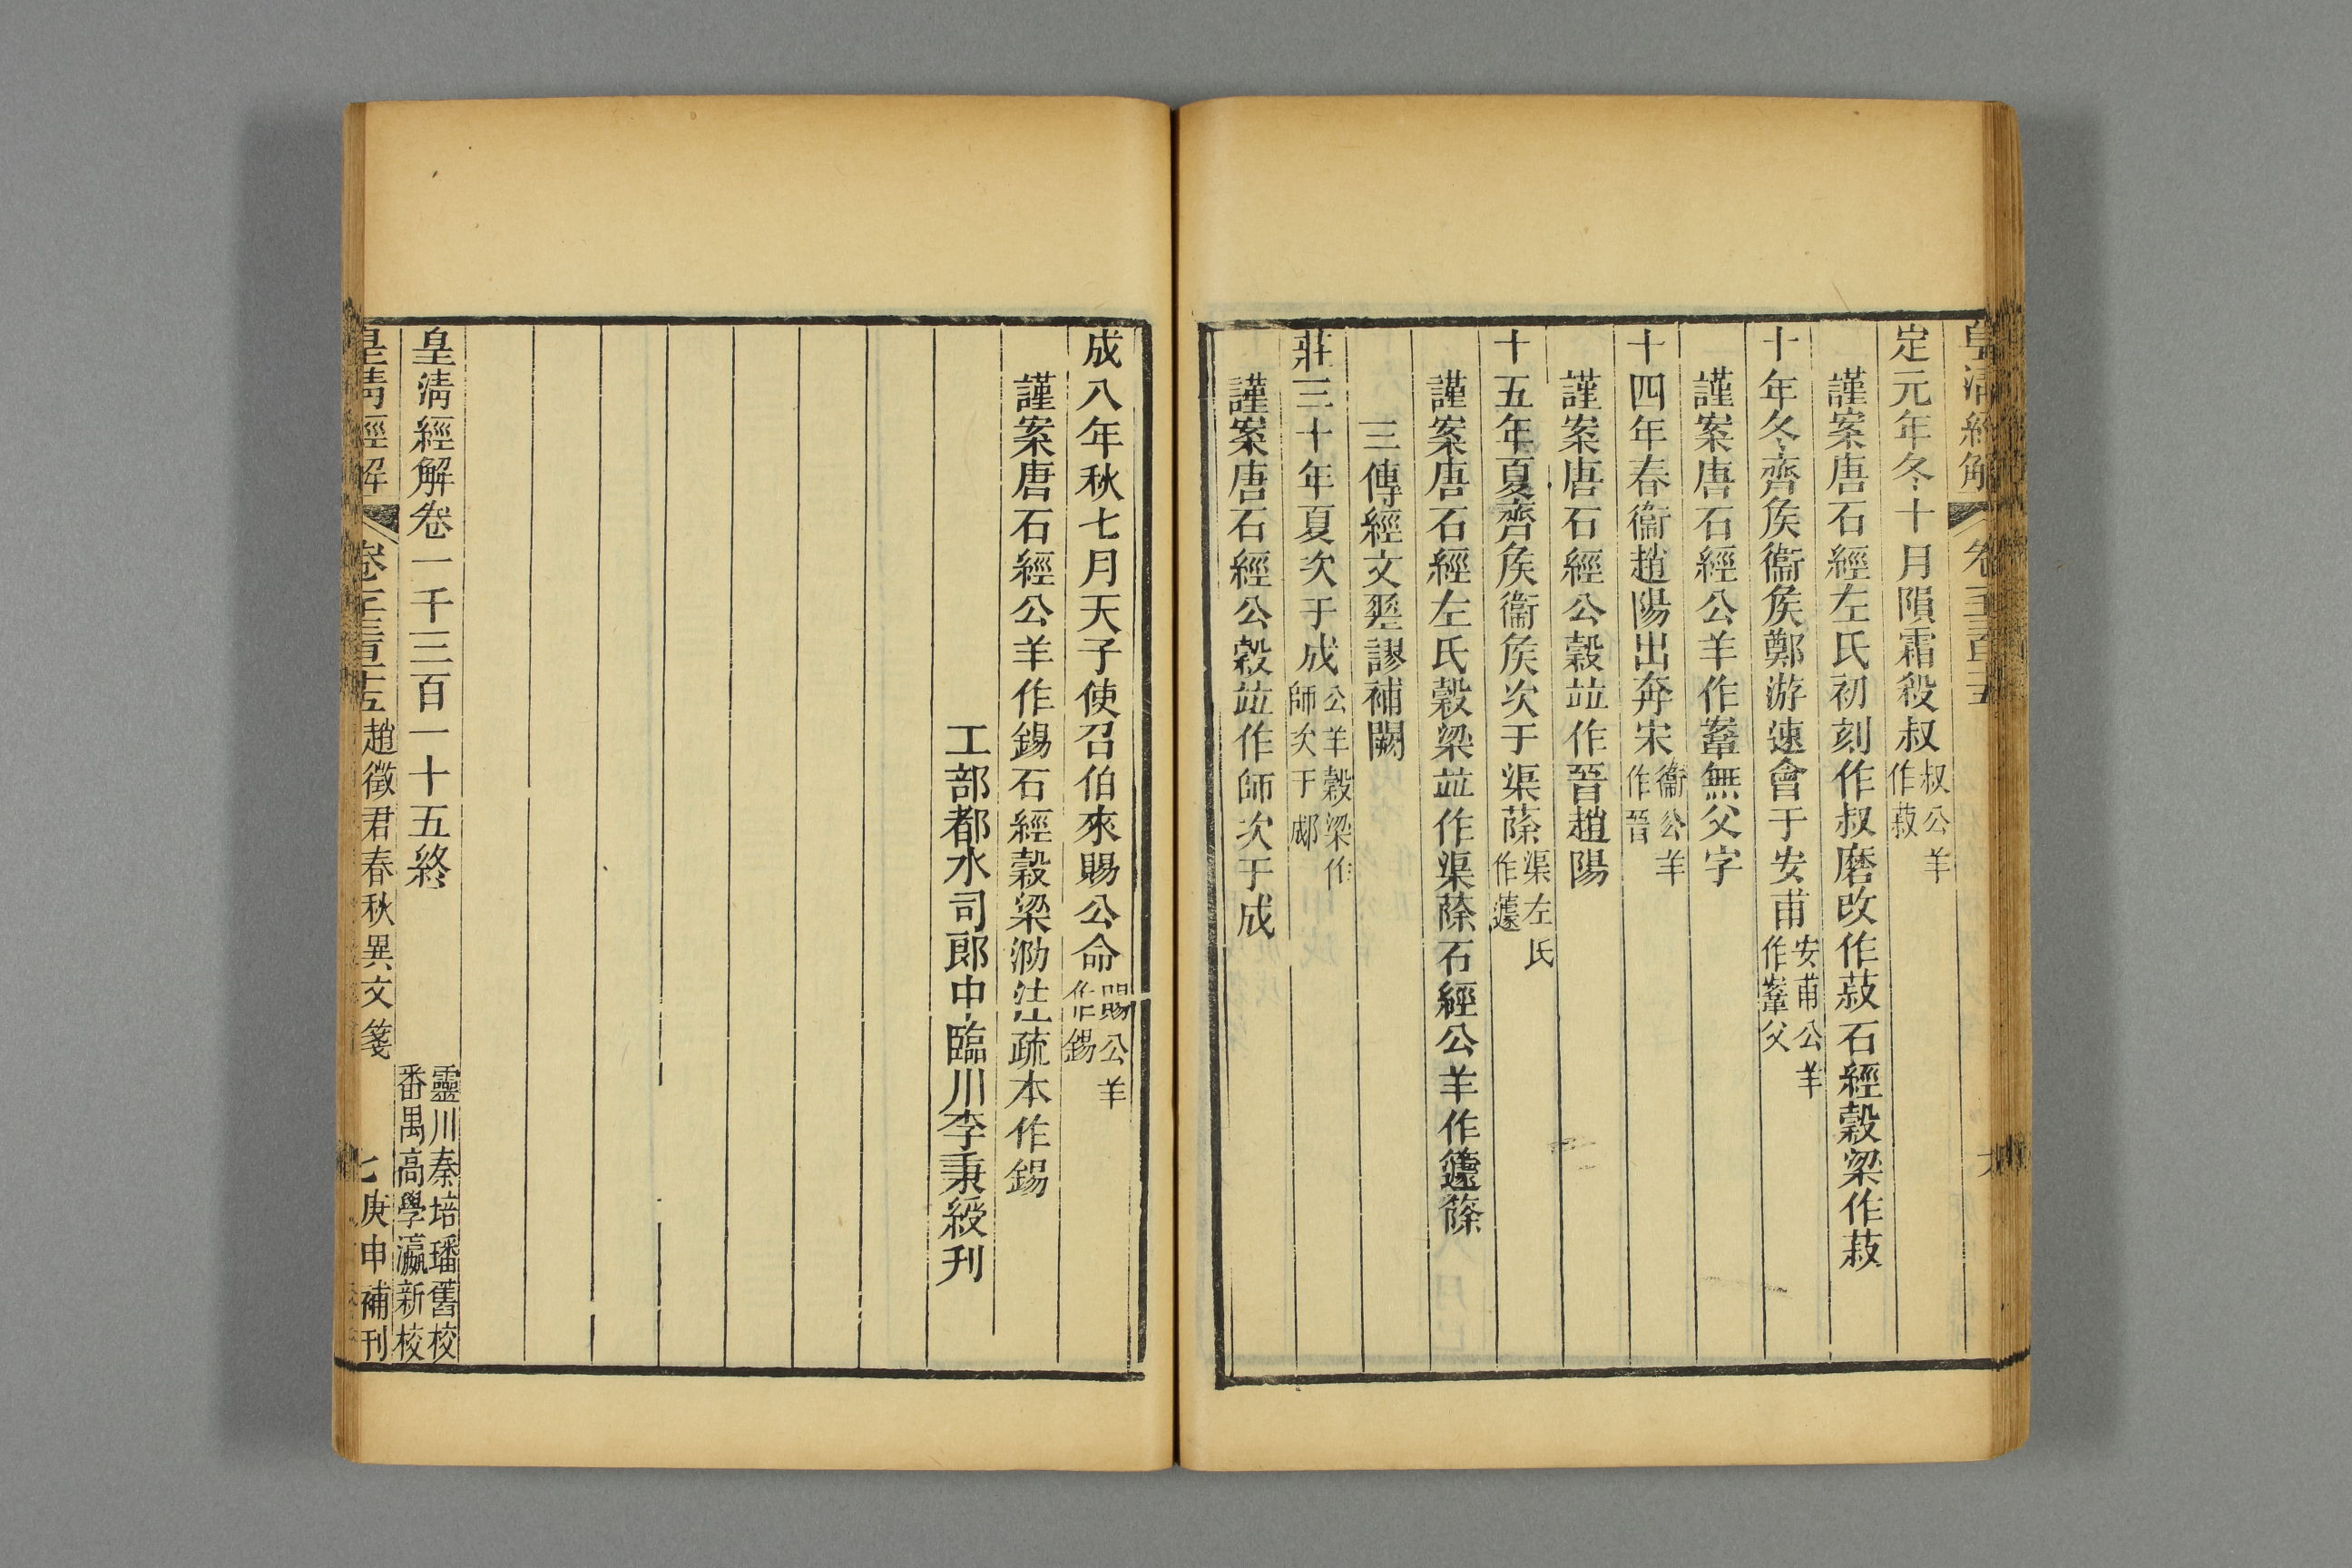 皇清經解 卷一千三百十五
定元年冬十月隕霜殺叔叔公羊作菽
謹案唐石經左氏初刻作叔磨改作菽石經穀梁作菽
十年冬齊矦衞矦鄭游速會于安甫安甫公羊作鞌父
謹案唐石經公羊作鞌無父字
十四年春衞趙陽出奔宋衞公羊作晉
謹案唐石經公穀竝作晉趙陽
十五年夏齊矦衞矦次于渠蒢渠左氏作蘧
謹案唐石經左氏穀梁竝作渠蒢石經公羊作籧篨
三傳經文疑謬補闕
莊三十年夏次于成公羊穀梁作師次于郕
謹案唐石經公穀竝作師次于成
成八年秋七月天子使召伯來賜公命賜公羊作錫
謹案唐石經公羊作錫石經穀梁泐注疏本作錫
工部都水司郎中臨川李秉綬刊
皇清經解卷一千三百一十五終
靈川秦培璠舊校
番禺高學瀛新校
皇清經解 卷一千三百十五 趙徵君春秋異文箋 七 庚申補刊